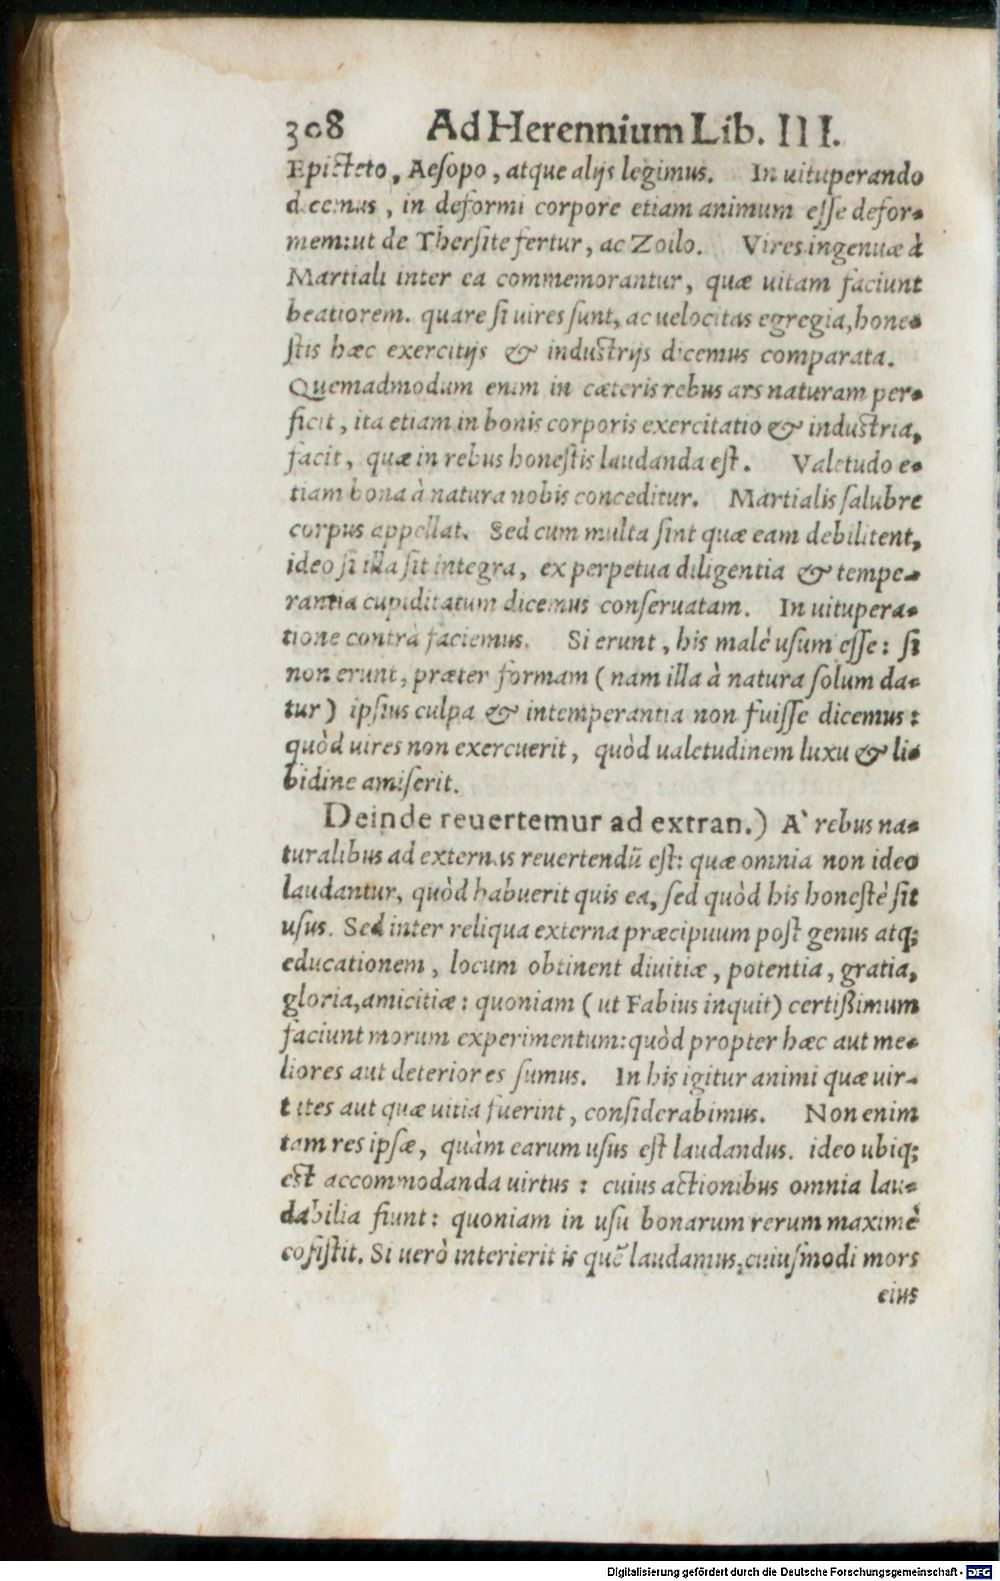 308 Ad Herennium Lib. III.
Epicteto, Aesopo, atque alijs legimus. In uituperando
dicemus, in deformi corpore etiam animum esse defor-
mem: ut de Thersite fertur, ac Zoilo. Vires ingenuæ à
Martiali inter ea commemorantur, quæ uitam faciunt
beatiorem. quare si uires sunt, ac uelocitas egregia, hone-
stis hæc exercitijs & industrijs dicemus comparata.
Quemadmodum enim in cæteris rebus ars naturam per-
ficit, ita etiam in bonis corporis exercitatio & industria,
facit, quæ in rebus honestis laudanda est. Valetudo e-
tiam bona à natura nobis conceditur. Martialis salubre
corpus appellat. Sed cum multa sint quæ eam debilitent,
ideo si illa sit integra, ex perpetua diligentia & tempe-
rantia cupiditatum dicemus conseruatam. In uitupera-
tione contrà faciemus. Si erunt, his malè usum esse: si
non erunt, præter formam (nam illa à natura solum da-
tur) ipsius culpa & intemperantia non fuisse dicemus:
quòd uires non exercuerit, quòd ualetudinem luxu & li-
bidine amiserit.
Deinde reuertemur ad extran.) A` rebus na-
turalibus ad externas reuertendũ est: quæ omnia non ideo
laudantur, quòd habuerit quis ea, sed quòd his honestè sit
usus. Sed inter reliqua externa præcipuum post genus atq;
educationem, locum obtinent diuitiæ, potentia, gratia,
gloria, amicitiæ: quoniam (ut Fabius inquit) certißimum
faciunt morum experimentum: quòd propter hæc aut me-
liores aut deteriores sumus. In his igitur animi quæ uir-
tutes aut quæ uitia fuerint, considerabimus. Non enim
tam res ipsæ, quàm earum usus est laudandus. ideo ubiq;
est accommodanda uirtus: cuius actionibus omnia lau-
dabilia fiunt: quoniam in usu bonarum rerum maximè
cosistit. Si uerò interierit is quẽ laudamus, cuiusmodi mors
eius
Digitalisierung gefördert durch die Deutsche Forschungsgemeinschaft - DFG